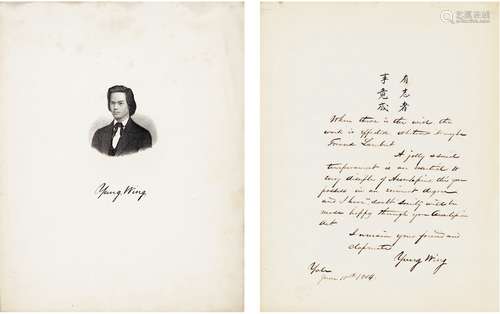 Yung Wing
有志者
事竟成
When there is the will, the
work is effected without
Friend Lambert
A jolly
temperament is an essential to
any disciple of Aesculapius this you
possess in an eminent degree
and I have doubt will be
made happy through your
Art
I remain your friend and
classmate
Yung Wing
Yale
June 10th